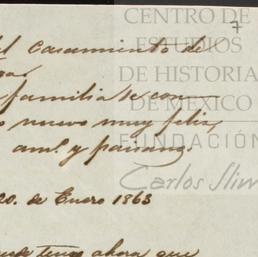 CENTRO DE
ESTUDIOS
DE HISTORIA
DE MÉXICO
FUNDACIÓN
Carlos Slim
7
el Casamiento de
familia se con
nuevo muy feliz,
am.º y paisano.
20. de Enero 1863
tengo ahora que